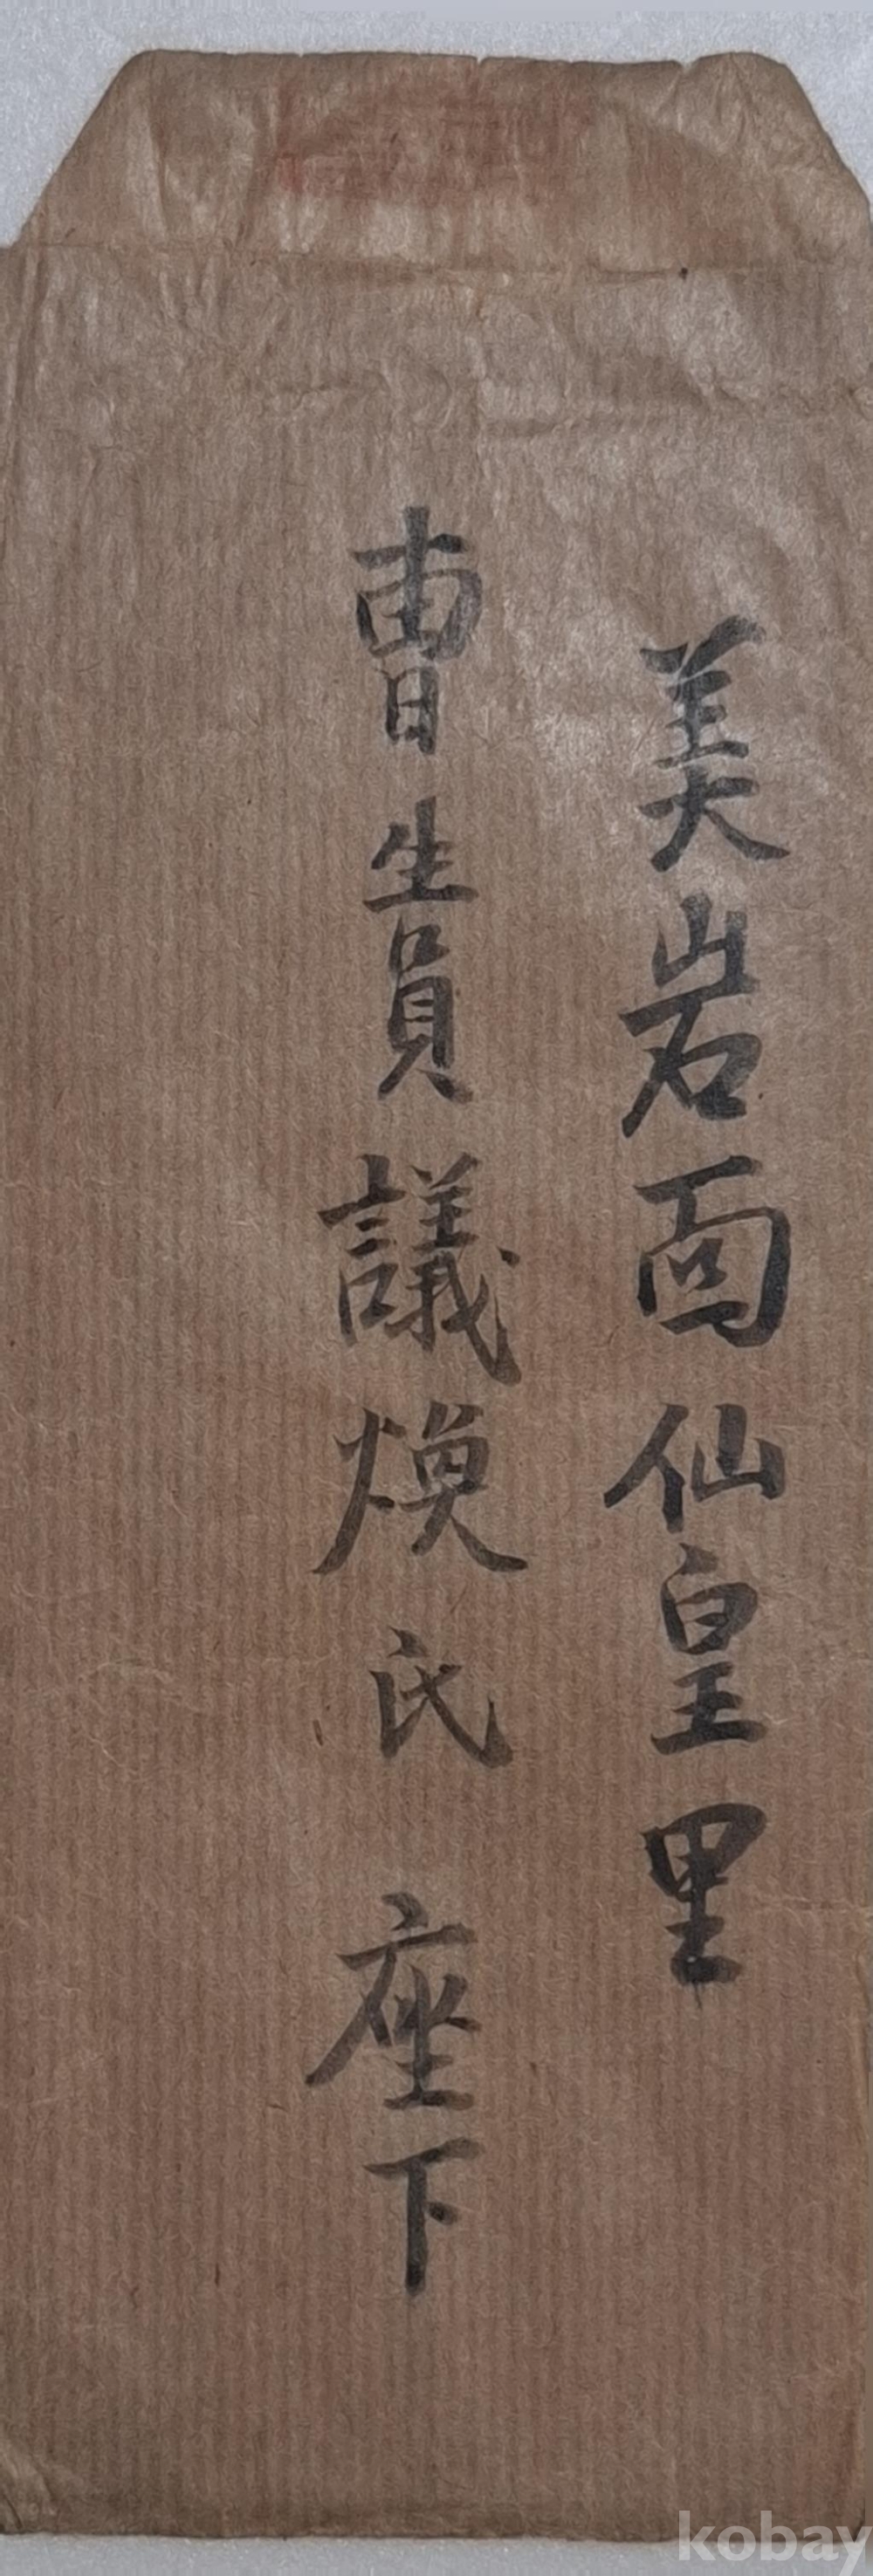 美岩面仙皇里
曺生員議煥氏 座下
kobay